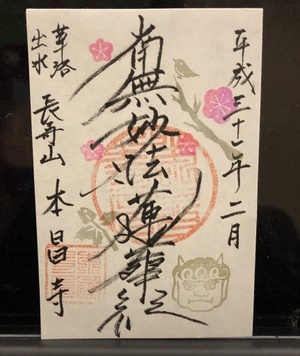 平成三十一年二月
南無妙法蓮華経
華洛
出水
長寿山 本昌寺